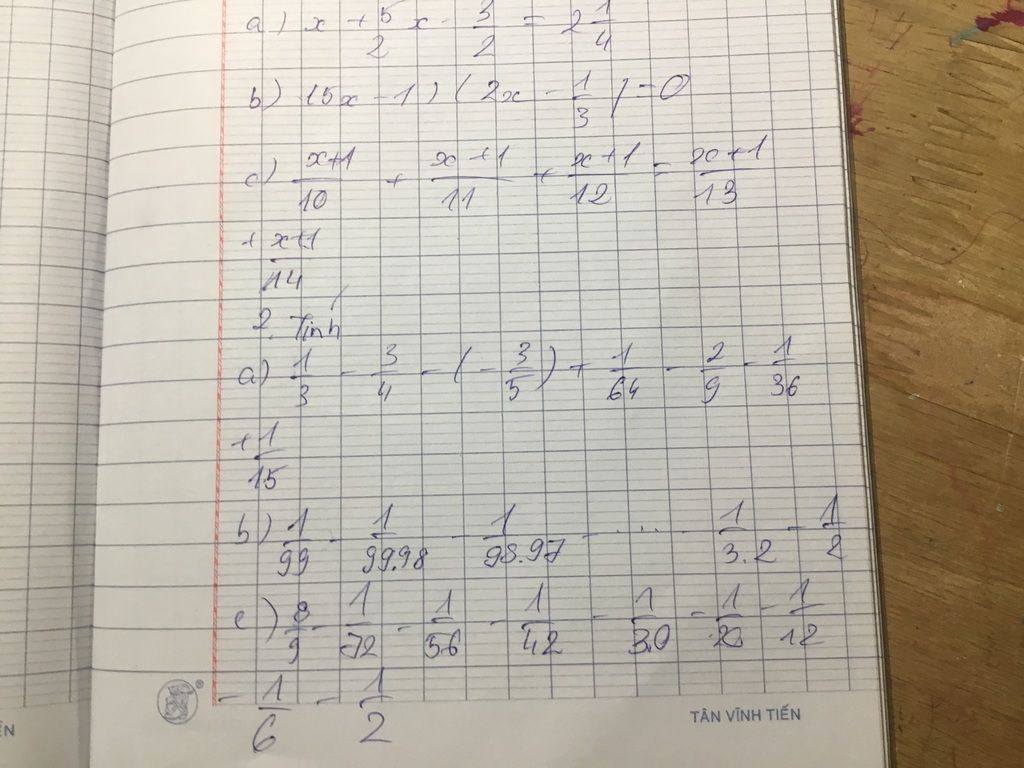 a) x + 5/2 x - 3/2 = 2 1/4
b) (5x - 1) (2x - 1/3) = 0
c) x+1/10 + x+1/11 + x+1/12 = x+1/13
+ x+1/14
2. Tính
a) 1/3 - 3/4 - (- 3/5) + 1/64 - 2/9 - 1/36
+ 1/15
b) 1/99 - 1/99.98 - 1/98.97 - ..... - 1/3.2 - 1/2
c) 8/9 - 1/72 - 1/56 - 1/42 - 1/30 - 1/20 - 1/12
- 1/6 - 1/2
TÂN VĨNH TIẾN
ÊN